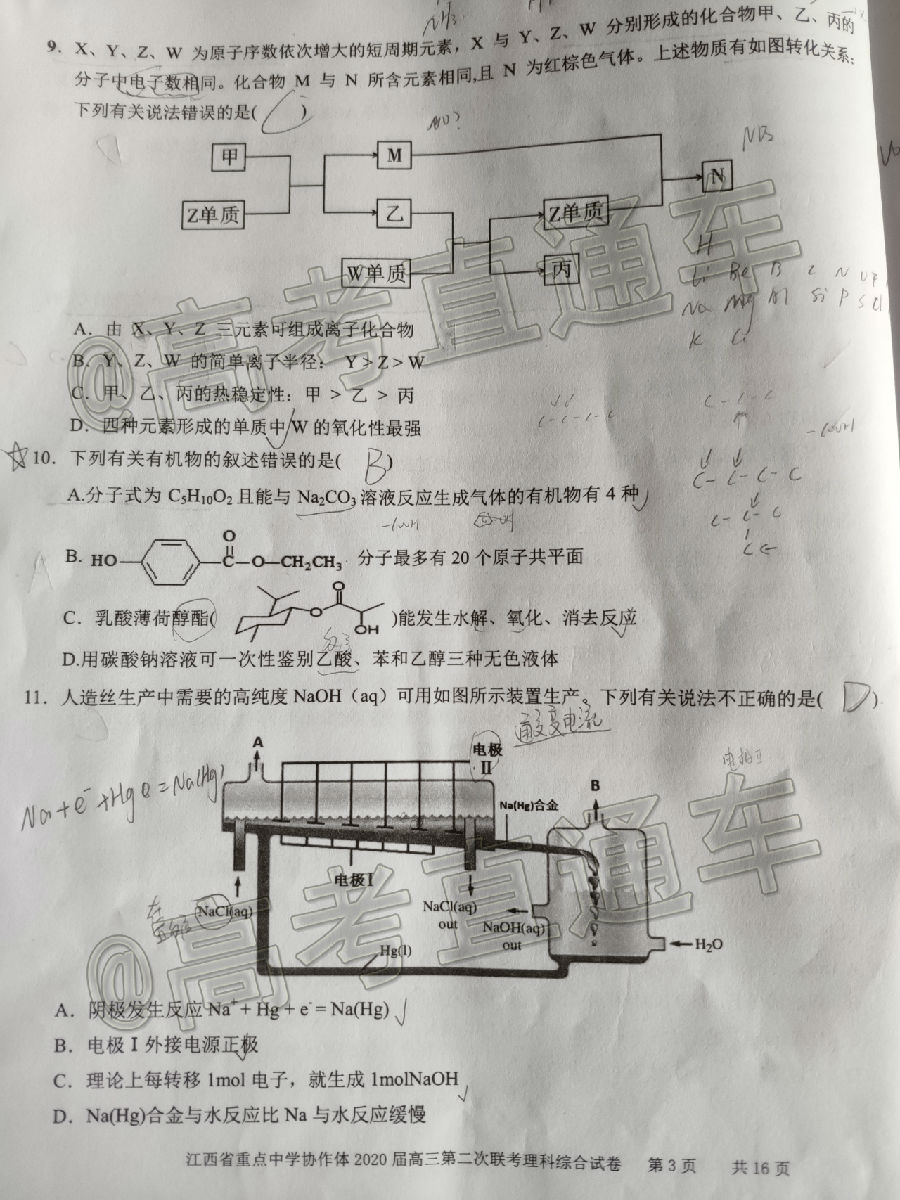 9. X、Y、Z、W 为原子序数依次增大的短周期元素，X 与 Y、Z、W 分别形成的化合物甲、乙、丙的
分子中电子数相同。化合物 M 与 N 所含元素相同,且 N 为红棕色气体。上述物质有如图转化关系:
下列有关说法错误的是( C )
NO?
NO₂
甲
M
N
Z单质
乙
Z单质
W单质
丙
H
Li Be B C N O F
Na Mg Al Si P S Cl
K
A. 由 X、Y、Z 三元素可组成离子化合物
B. Y、Z、W 的简单离子半径: Y > Z > W
C. 甲、乙、丙的热稳定性: 甲 > 乙 > 丙
D. 四种元素形成的单质中 W 的氧化性最强
C-C-C-C
C-C-C
-COOH
☆10. 下列有关有机物的叙述错误的是( B )
C-C-C-C
A.分子式为 C₅H₁₀O₂ 且能与 Na₂CO₃ 溶液反应生成气体的有机物有 4 种
-COOH
C-C-C
B. HO O C—O—CH₂CH₃ 分子最多有 20 个原子共平面
C. 乳酸薄荷醇酯( O O OH )能发生水解、氧化、消去反应
D.用碳酸钠溶液可一次性鉴别乙酸、苯和乙醇三种无色液体
11. 人造丝生产中需要的高纯度 NaOH（aq）可用如图所示装置生产。下列有关说法不正确的是( D )
A
电极
II
电极II
B
Na+e⁻+Hg=Na(Hg)
Na(Hg)合金
电极I
NaCl(aq)
NaCl(aq)
out
NaOH(aq)
out
Hg(l)
H₂O
A. 阴极发生反应 Na⁺ + Hg + e⁻ = Na(Hg)
B. 电极 I 外接电源正极
C. 理论上每转移 1mol 电子，就生成 1molNaOH
D. Na(Hg)合金与水反应比 Na 与水反应缓慢
江西省重点中学协作体 2020 届高三第二次联考理科综合试卷 第 3 页 共 16 页
@高考直通车
@高考直通车